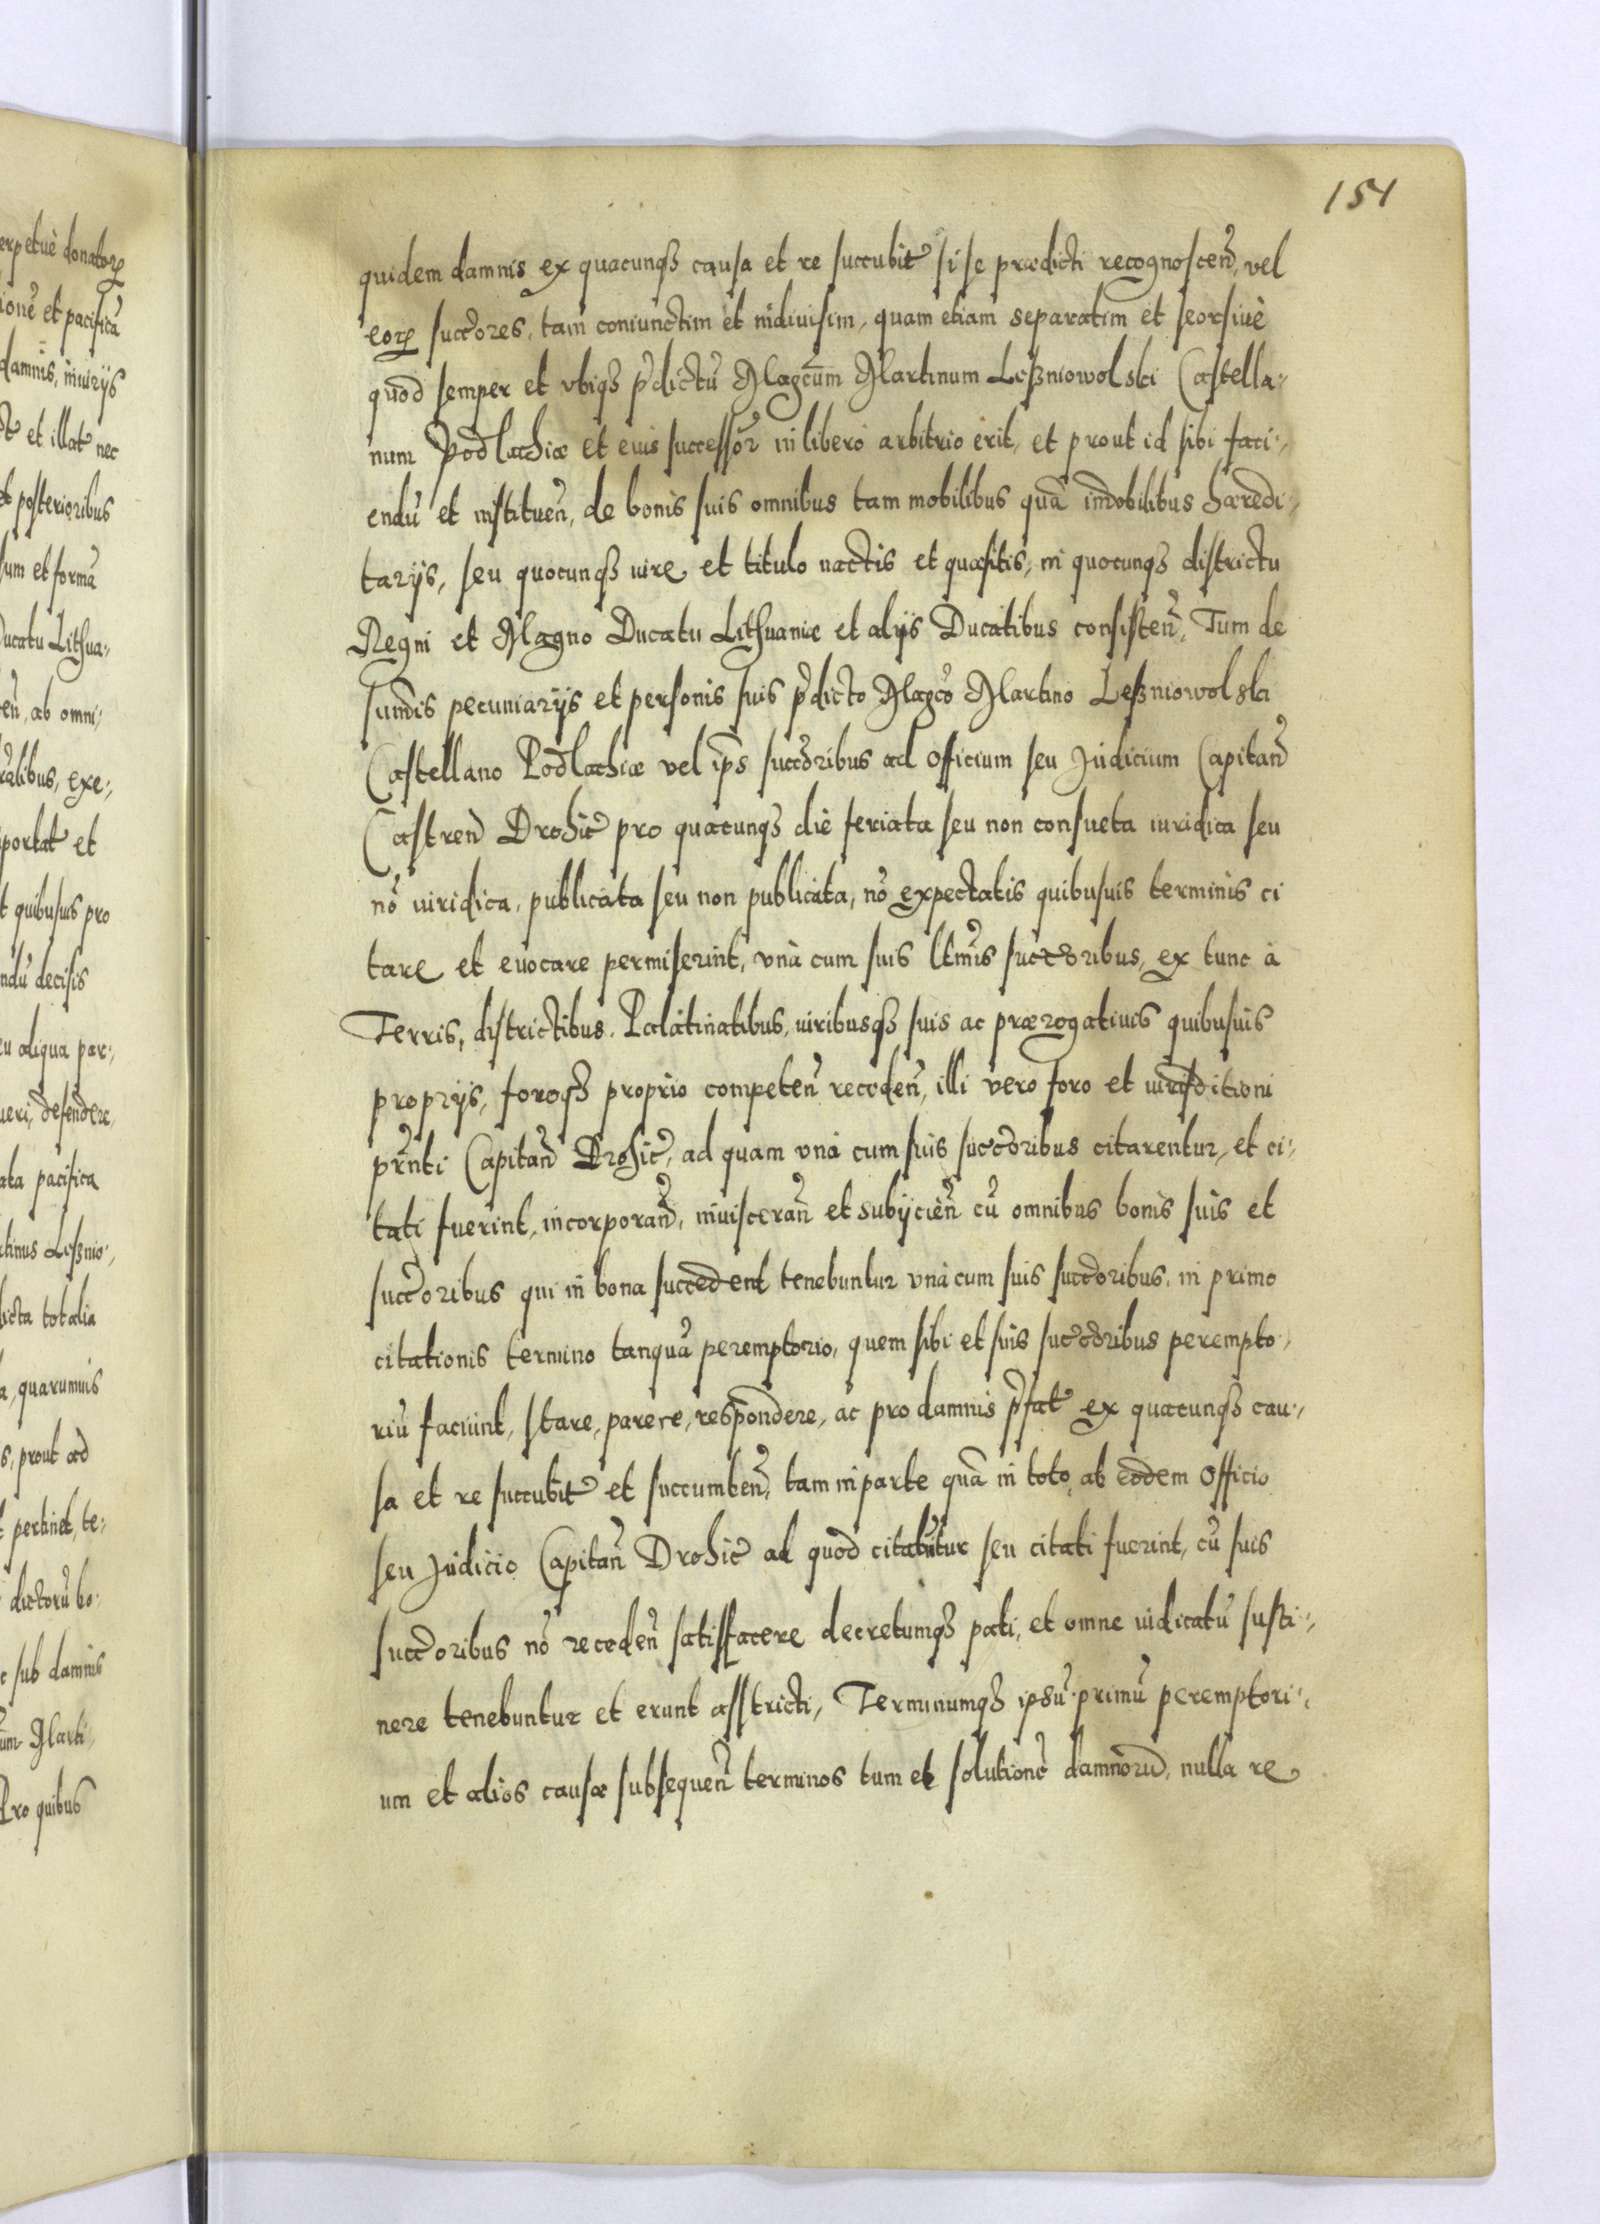 154
quidem damnis ex quacunqꝫ causa et re succubit si se prædicti recognoscen̄, vel
eorꝫ succ̄ores, tam coniunctim et indiuisim, quam etiam separatim et seorsiuè
quod semper et vbiqꝫ p̄dictū Magcum Martinum Leßniowolski Castella-
num Podlachiæ et eius successor̄ in libero arbitrio erit, et prout id sibi faci-
endū et instituen̄, de bonis suis omnibus tam mobilibus quā im̄obilibus hæredi-
tarijs, seu quocunqꝫ iure et titulo nactis et quæsitis, in quocunqꝫ districtu
Regni et Magno Ducatu Lithuaniæ et alijs Ducatibus consisten̄, Tum de
sum̄is pecuniarijs et personis suis p̄dicto Magc̄o Martino Leßniowolski
Castellano Podlachiæ vel ip̄s succ̄oribus ad Officium seu Judicium Capitan̄
Castren̄ Drohic̄ pro quacunqꝫ die feriata seu non consueta iuridica seu
nō iuridica, publicata seu non publicata, nō expectatis quibusuis terminis ci
tare et euocare permiserint, vnà cum suis ltm̄is succ̄oribus, ex tunc à
Terris, districtibus, Palatinatibus, iuribusqꝫ suis ac prærogatiuis quibusuis
proprijs, foroqꝫ proprio competen̄ receden̄, illi vero foro et iurisditioni
prn̄ti Capitan̄ Drohic̄, ad quam vnà cum suis succ̄oribus citarentur, et ci-
tati fuerint, incorporan̄, inuisceran̄ et subijcien̄ cū omnibus bonis suis et
succ̄oribus qui in bona succedent tenebuntur vnà cum suis succ̄oribus, in primo
citationis termino tanquā peremptorio, quem sibi et suis succ̄oribus perempto-
riū faciunt, stare, parere, respondere, ac pro damnis p̄fat̄ ex quacunqꝫ cau-
sa et re succubit̄ et succumben̄, tam in parte quā in toto, ab eodem Officio
seu Judicio Capitan̄ Drohic̄ ad quod citabūtur seu citati fuerint, cū suis
succ̄oribus nō receden̄ satisfacere decretumqꝫ pati, et omne iudicatū susti-
nere tenebuntur et erunt asstricti, Terminumqꝫ ipsū primū peremptori-
um et alios causæ subsequen̄ terminos tum et solutionē damnorū, nulla re